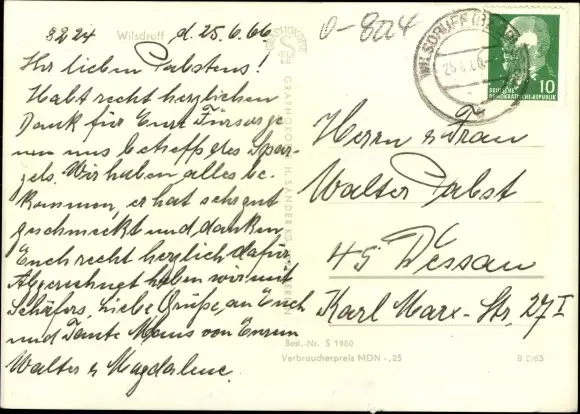 8224 Wilsdruff d. 25.6.66
Ihr lieben Pabstens!
Habt recht herzlichen
Dank für Eure Fürsorge
uns betreff des Spar-
gels. Wir haben alles be-
kommen, er hat sehr gut
geschmeckt und danken
Euch recht herzlich dafür.
Abgerechnet haben wir mit
Schäfers, Liebe Grüße, an Euch
und Tante Maus von Euren
Walter u Magdalene.
0-824
WILSDRUFF
DEUTSCHE
DEMOKRATISCHE REPUBLIK
10
GRAPHOKOPIE H. SANDER KG
Herrn u Frau
Walter Pabst
45 Dessau
Karl Marx-Str. 27 I
Best.-Nr. S 1980
Verbraucherpreis MDN -,25
B 2/65